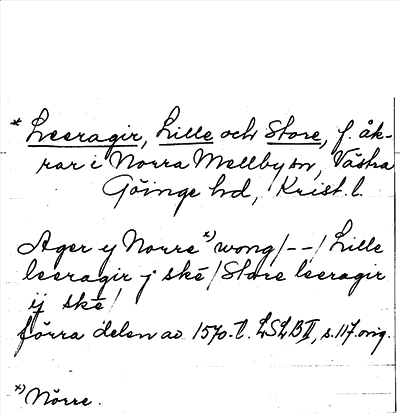 * Leeragir, Lille och Store, f. åk-
rar i Norra Mellby sn, Västra
Göinge hd, Krist. l.
Ager y Norre x) wong/--/Lille
leeragir j skē/Store leeragir
ij skē/
förra delen av 1570-t. LSLB II, s. 117. orig.
x) Nörre.